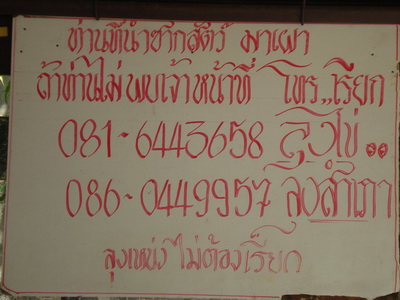 ท่านที่นำซากสัตว์ มาเผา
ถ้าท่านไม่พบเจ้าหน้าที่ โทร,,เรียก
081-6443658 ลุงไข่..
086-0449957 ลุงสำเภา
ลุงเหน่ง ไม่ต้องเรียก